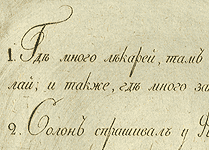 1. Гдѣ много лѣкарей, тамъ
лай; и также, гдѣ много за
2. Солонъ спрашивалъ у